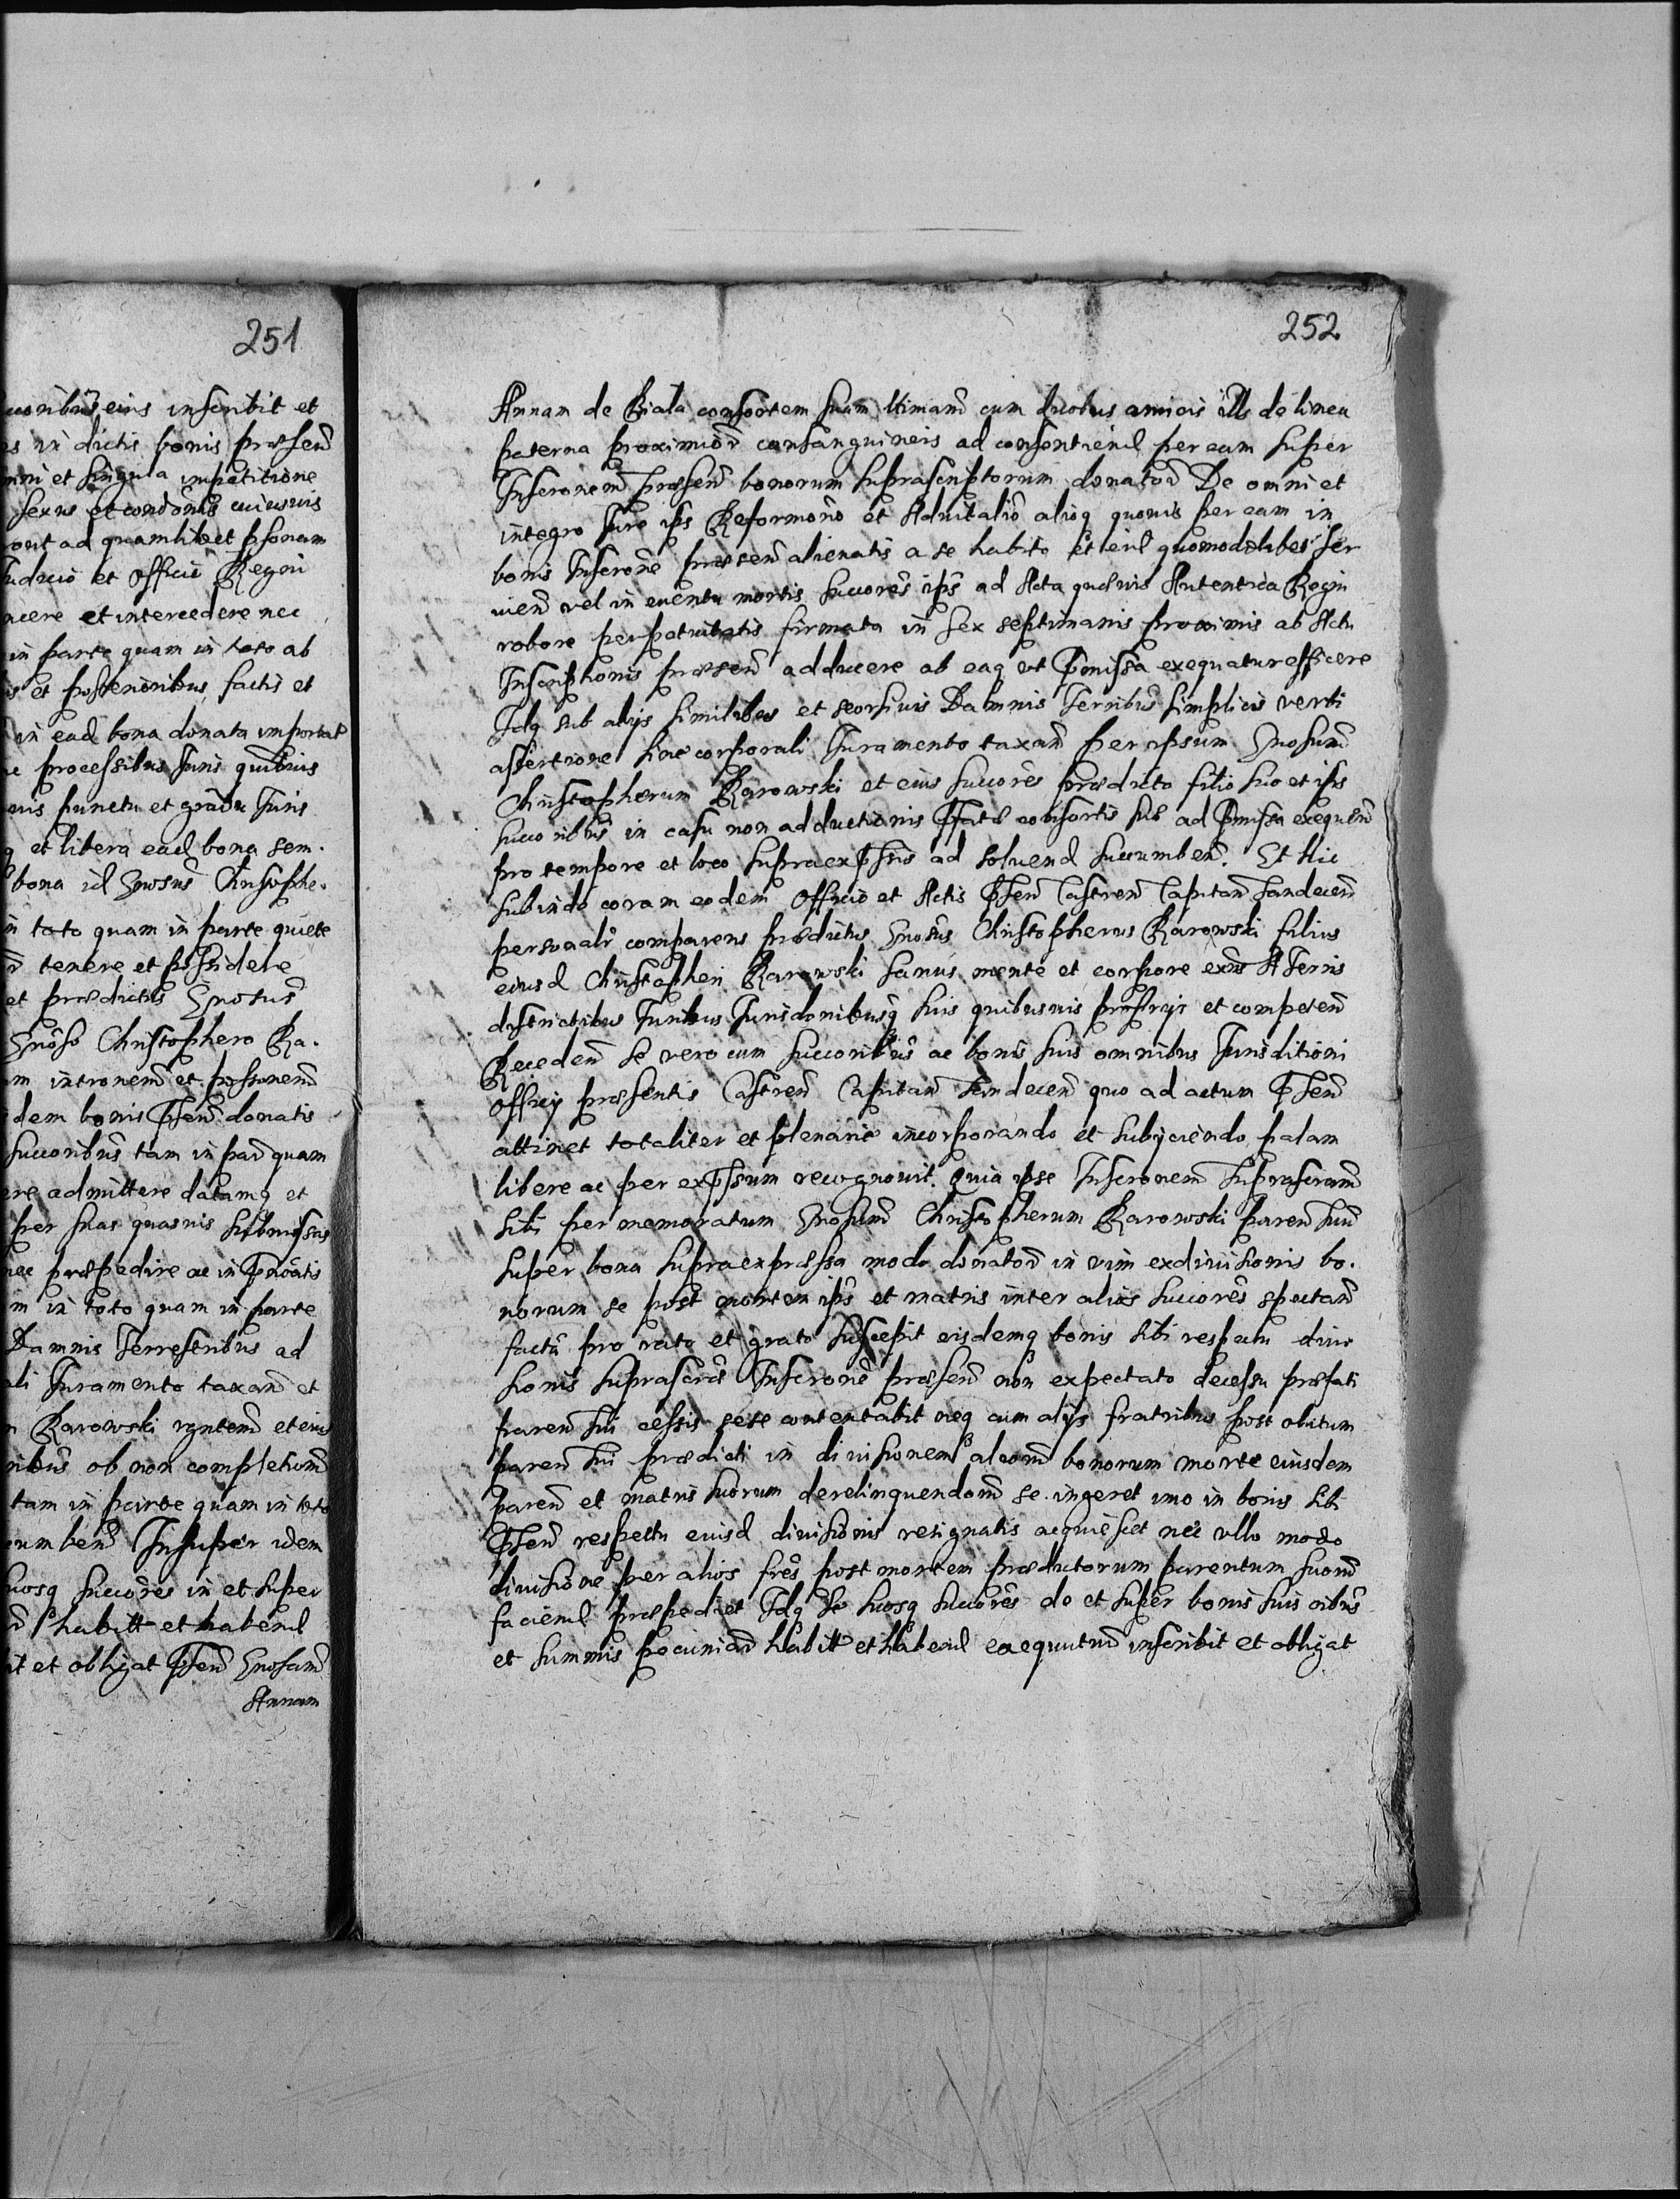 251
uoribus eius inscribit et
es in dictis bonis præsen
omni et singula impetitione
sexus et condonis cuiusuis
ad quamlibet psonam
Judicio et Officio Regni
acere et intercedere nec
in parte quam in toto ab
is et posterioribus factis et
in ead bona donata important
processibus Juris quibuis
uis punctu et gradu Juris
q et libera ead bona sem.
bona id Gnosus Christophe.
n toto quam in parte quiete
tenere et possidere
et prædictus Gnosus
Gnoso Christophero Ra.
m intronem et possionem
dem bonis Psen donatis
succoribus tam in par quam
ere admittere datamq et
per suas quasuis submissas
nec præpedire ac in
m in toto quam in parte
Damnis Terrestribus ad
ali Juramento taxan et
n Rarowski et eius
ribus ob non completion
tam in parte quam in toto
cumben Insuper idem
suosq succores in et super
habitt et habend
it et obligat Psen Gnosam
Annam
252
Annam de Biała consortem suam ltimam cum duobus amicis ills de linea
paterna proximior consanguineis ad consentiend per eam super
Inscronem præsen bonorum suprascriptorum donator De omni et
integro Jure ips Reformono et Aduitalio alioq quouis per eam in
bonis Inscrone præsen alienatis a se habito et eid quomodolibet ser
uien vel in euentu mortis succores ips ad Acta quæuis Autentica Regni
robore perpetuitatis firmata in sex septimanis proximis ab Actu
Inscriptionis præsen adducere ab eaq ut Pmissa exequatur efficere
Idq sub alijs similibus et seorsiuis Damnis Terribus simplicis verbi
assertione sine corporali Juramento taxan per ipsum Gnosum
Christopherum Rarowski et eius succores prædicto filio suo et ips
succoribus in casu non adductionis Pfatæ consortis suæ ad Pmissa exequen
pro tempore et loco supraexpssis ad soluend succumben. Et Hic
subinde coram eodem Officio et Actis Psen Castren Capitan Sandecen
personalr comparens prædictus Gnosus Christopherus Rarowski filius
eiusd Christopheri Rarowski sanus mente et corpore exns A Terris
districtibus Juribus Jurisdonibusq suis quibusuis proprijs et competen
Receden se vero cum succoribus ac bonis suis omnibus Jurisditioni
Officij præsentis Castren Capitan Sandecen quo ad actum Psen
attinet totaliter et plenarie incorporando et subijciendo palam
libere ac per expssum recognouit. Quia ipse Inscronem suprascram
sibi per memoratum Gnosum Christopherum Rarowski paren suu
super bona supraexpressa modo donator in vim exdiuisionis bo.
norum se post mortem ips et matris inter alios succores spectan
facta pro rato et grato suscepit eisdemq bonis sibi respectu diui
sionis suprascræ Inscrone præsen non expectato decessu præfati
paren sui cessis sese contentabit neq cum alijs fratribus post obitum
paren sui prædicti in diuisionem alcom bonorum morte eiusdem
paren et matris suorum derelinquendom se ingeret imo in bonis sibi
Psen respectu eiusd diuisionis resignatis acquiescet nec vllo modo
diuisione per alios fres post mortem prædictorum parentum suom
faciend præpediet Idq se suosq succores de et super bonis suis oibus
et summis pecuniar habitt et habend inscribit et obligat